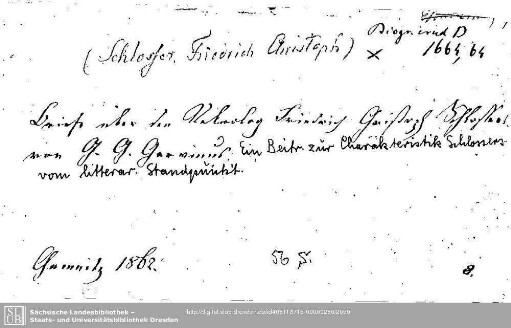 (Schlosser, Friedrich Christoph)
Biogr. erud. D
1664, 64
Briefe über den Nekrolog Friedrich Christoph Schlossers
von G. G. Gervinus. Ein Beitr. zur Charakteristik Schlossers
vom litterar. Standpunkt.
Chemnitz 1862.
56 S.
8.
Sächsische Landesbibliothek –
Staats- und Universitätsbibliothek Dresden